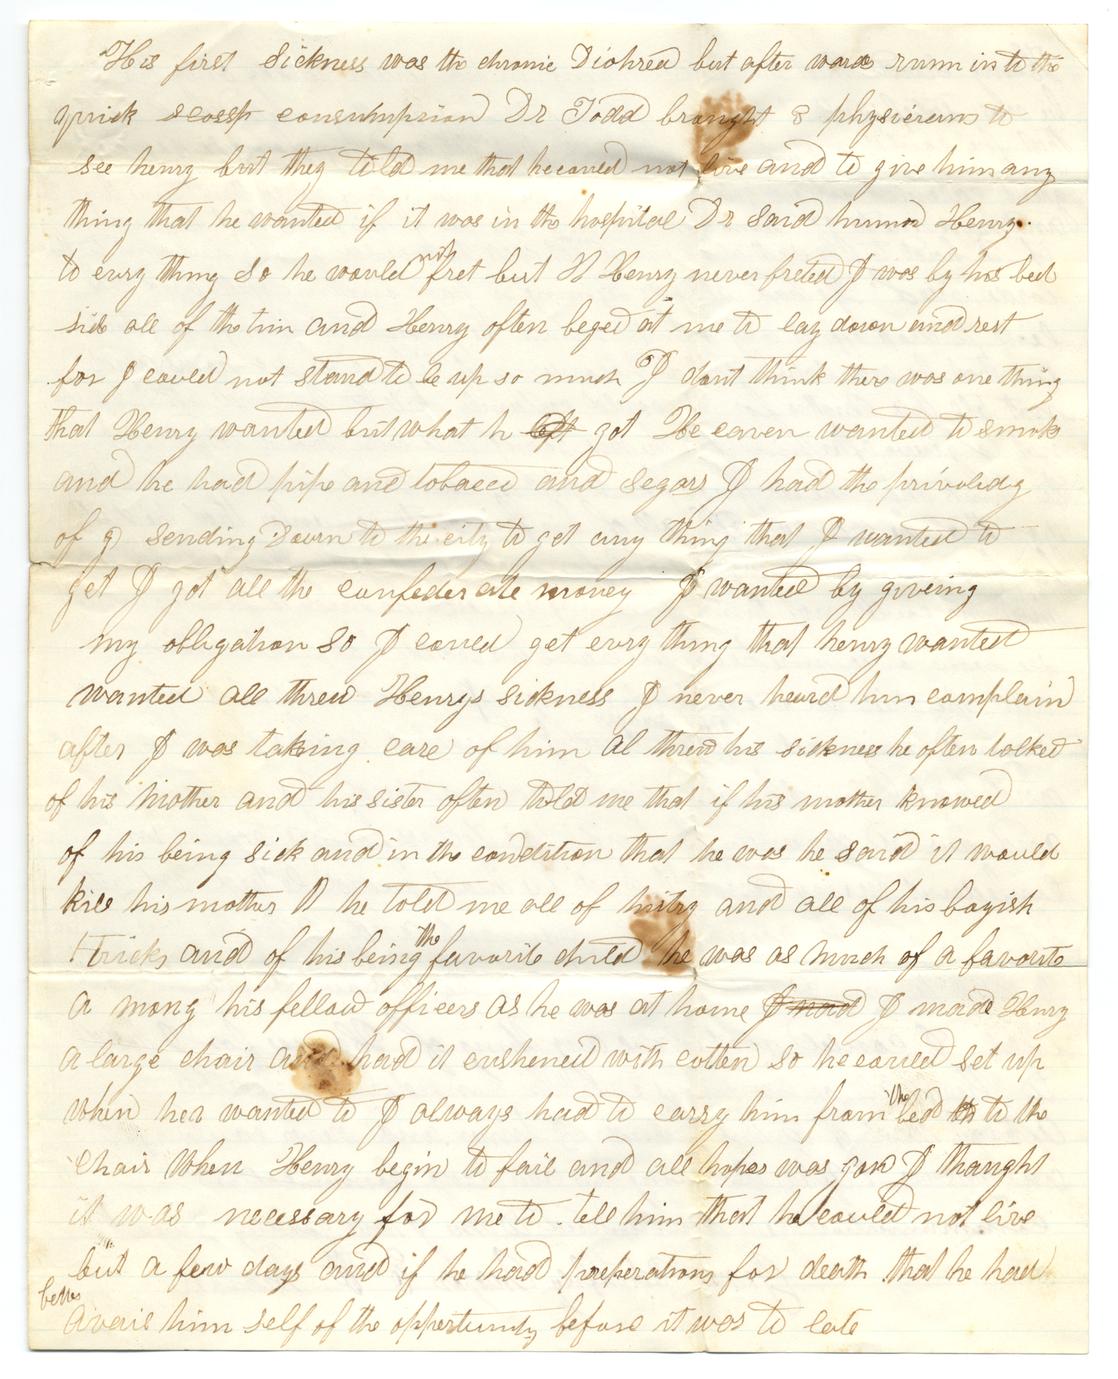 His first sickness was the chronic Diohrea but after wards runn in to the
quick consumpsion Dr Todd braught 3 physicians to
see henry but they told me that he caued not live and to give him any
thing that he wanted if it was in the hospital Dr said humor Henry
to evry thing so he would not fret but H Henry never freted I was by his bed
side all of the tim and Henry often beged at me to lay down and rest
for I caued not stand to be up so much I dont think there was one thing
that Henry wanted but what h got He eaven wanted to smoke
and he had pipe and tobacco and segars I had the priviledg
of g sending Down to the city to get any thing that I wanted to
get I got all the confederate money I wanted by giveing
my obligation so I caued get evry thing that henry wanted
wanted all threw Henrys sickness I never heard him complain
after I was taking care of him al threw his sickness he often talked
of his Mother and his sister often told me that if his mother knowed
of his being sick and in the condition that he was he said it would
kill his mother he told me all of histry and all of his boyish
tricks and of his being the favorite child he was as much of a favorite
a mong his fellow officers as he was at home I mad I made Henry
a large chair and had it cushened with cotten so he caued set up
when her wanted to I always had to carry him from the bed to the
chair When Henry begin to fail and all hopes was gon I thaught
it was necessary for me to tell him that he could not live
but a few days and if he had preperations for death that he had
better
avail him self of the oppertunity before it was to late